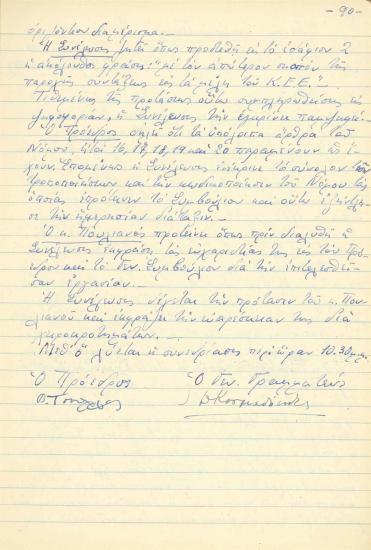 - 90 -
ὁριζόντων διαμέρισμα.-
Ἡ Συνέλευσις ζητεῖ ὅπως προστεθῇ εἰς τὸ ἐδάφιον 2
ἡ ἀκόλουθος φράσις: "μὲ τὸν ἀπώτερον σκοπὸν τῆς
παροχῆς συντάξεως εἰς τὰ μέλη τοῦ Κ.Ε.Ε."
Τιθεμένης τῆς προτάσεως οὕτω συμπληρωθείσης εἰς
ψηφοφορίαν, ἡ Συνέλευσις τὴν ἐγκρίνει παμψηφεί.-
Ὁ Πρόεδρος ὅτι τὰ ὑπόλοιπα ἄρθρα τοῦ
Νόμου, 16, 17, 18, 19 καὶ 20 παραμένουν ὡς ἔ-
χουν. Ἑπομένως ἡ Συνέλευσις ἐνέκρινε τὸ σύνολον τῶν
τροποποιήσεων καὶ τὴν κωδικοποίησιν τοῦ Νόμου τὰς
ὁποίας ἐπρότεινε τὸ Συμβούλιον καὶ οὕτω ἐξηντλή-
σε τὴν ἡμερησίαν διάταξιν.-
Ὁ κ. Πουλιανὸς προτείνει ὅπως πρὶν διαλυθῇ ἡ
Συνέλευσις ἐκφράσῃ τὰς εὐχαριστίας της εἰς τὸν Πρό-
εδρον καὶ τὸ Γεν. Συμβούλιον διὰ τὴν ἐπιτελεσθεῖ-
σαν ἐργασίαν.-
Ἡ Συνέλευσις δέχεται τὴν πρότασιν τοῦ κ. Που-
λιανοῦ καὶ ἐκφράζει τὴν εὐαρέσκειάν της διὰ
χειροκροτημάτων.-
Μεθ' ὃ λύεται ἡ συνεδρίασις περὶ ὥραν 10.30 μ.μ.
Ὁ Πρόεδρος Ὁ Γεν. Γραμματεύς